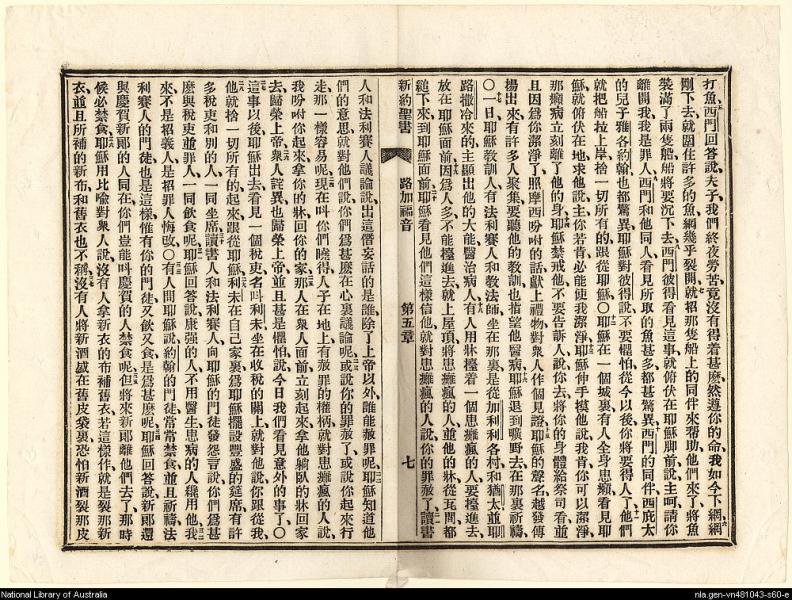 打魚西門回答說夫子我們終夜勞苦竟沒有得着甚麽然遵你的命我如今下網網
剛下去就圍住許多的魚網幾乎裂開就招那隻船上的同伴來幫助他們來了將魚
裝滿了兩隻船船將要沉下去西門彼得看見這事就俯伏在耶穌脚前說主呵請你
離開我我是罪人西門和他同人看見所取的魚甚多都甚驚異西門的同伴西庇太
的兒子雅各約翰也都驚異耶穌對彼得說不要懼怕從今以後你將要得人了他們
就把船拉上岸捨一切所有的跟從耶穌○耶穌在一個城裏有人全身患癩看見耶
穌就俯伏在地求他說主你若肯必能使我潔淨耶穌伸手摸他說我肯你可以潔淨
那癩病立刻離了他的身耶穌禁戒他不要告訴人說你去將你的身體給祭司看並
且因爲你潔淨了照摩西吩咐的話獻上禮物對衆人作個見證耶穌的聲名越發傳
揚出來有許多人聚集要聽他的教訓也指望他醫病耶穌退到曠野去在那裏祈禱
○一日耶穌教訓人有法利賽人和教法師坐在那裏是從加利利各村和猶太並耶
路撒冷來的主顯出他的大能醫治病人有人用牀擡着一個患癱瘋的人要擡進去
放在耶穌面前因爲人多不能擡進去就上屋頂將患癱瘋的人並他的牀從瓦間都
縋下來到耶穌面前耶穌看見他們這樣信他就對患癱瘋的人說你的罪赦了讀書
新約聖書 路加福音 第五章 七
人和法利賽人議論說出這僭妄話的是誰除了上帝以外誰能赦罪呢耶穌知道他
們的意思就對他們說你們爲甚麽在心裏議論呢或說你的罪赦了或說你起來行
走那一樣容易呢現在叫你們曉得人子在地上有赦罪的權柄就對患癱瘋的人說
我吩咐你起來拿你的牀回你的家那人在衆人面前立刻起來拿他躺臥的牀回家
去歸榮上帝衆人詫異也歸榮上帝並且甚是懼怕說今日我們看見意外的事了○
這事以後耶穌出去看見一個稅吏名叫利未坐在收稅的關上就對他說你跟從我
他就捨一切所有的起來跟從耶穌利未在自己家裏爲耶穌擺設豐盛的筵席有許
多稅吏和別的人一同坐席讀書人和法利賽人向耶穌的門徒發怨言說你們爲甚
麽與稅吏並罪人一同飲食呢耶穌回答說康强的人不用醫生患病的人纔用他我
來不是招義人是招罪人悔改○有人問耶穌說約翰的門徒常常禁食並且祈禱法
利賽人的門徒也是這樣惟有你的門徒又飲又食是爲甚麽呢耶穌回答說新郎還
與慶賀新郎的人同在你們豈能叫慶賀的人禁食呢但將來新郎離他們去了那時
候必禁食耶穌用比喩對衆人說沒有人拿新衣的布補舊衣若這樣作就是裂那新
衣並且所補的新布和舊衣也不稱沒有人將新酒盛在舊皮袋裏恐怕新酒裂那皮
National Library of Australia
nla.gen-vn481043-s60-e